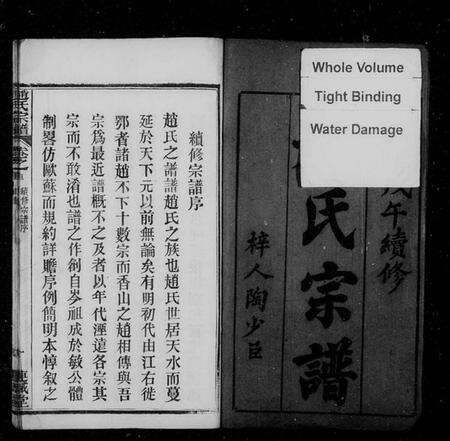 Whole Volume
Tight Binding
Water Damage
戊午續修
氏宗譜
梓人陶少臣
續修宗譜序
趙氏之譜譜趙氏之族也趙氏世居天水而蔓
延於天下元以前無論矣有明初代由江右徙
鄂者諸趙不下十數宗而香山之趙相傳與吾
宗爲最近譜概不之及者以年代湮遠各宗其
宗而不敢淆也譜之作創自岑祖成於敏公體
制畧仿歐蘇而規約詳贍序例簡明本惇敘之
趙氏宗譜
卷之
續修宗譜序